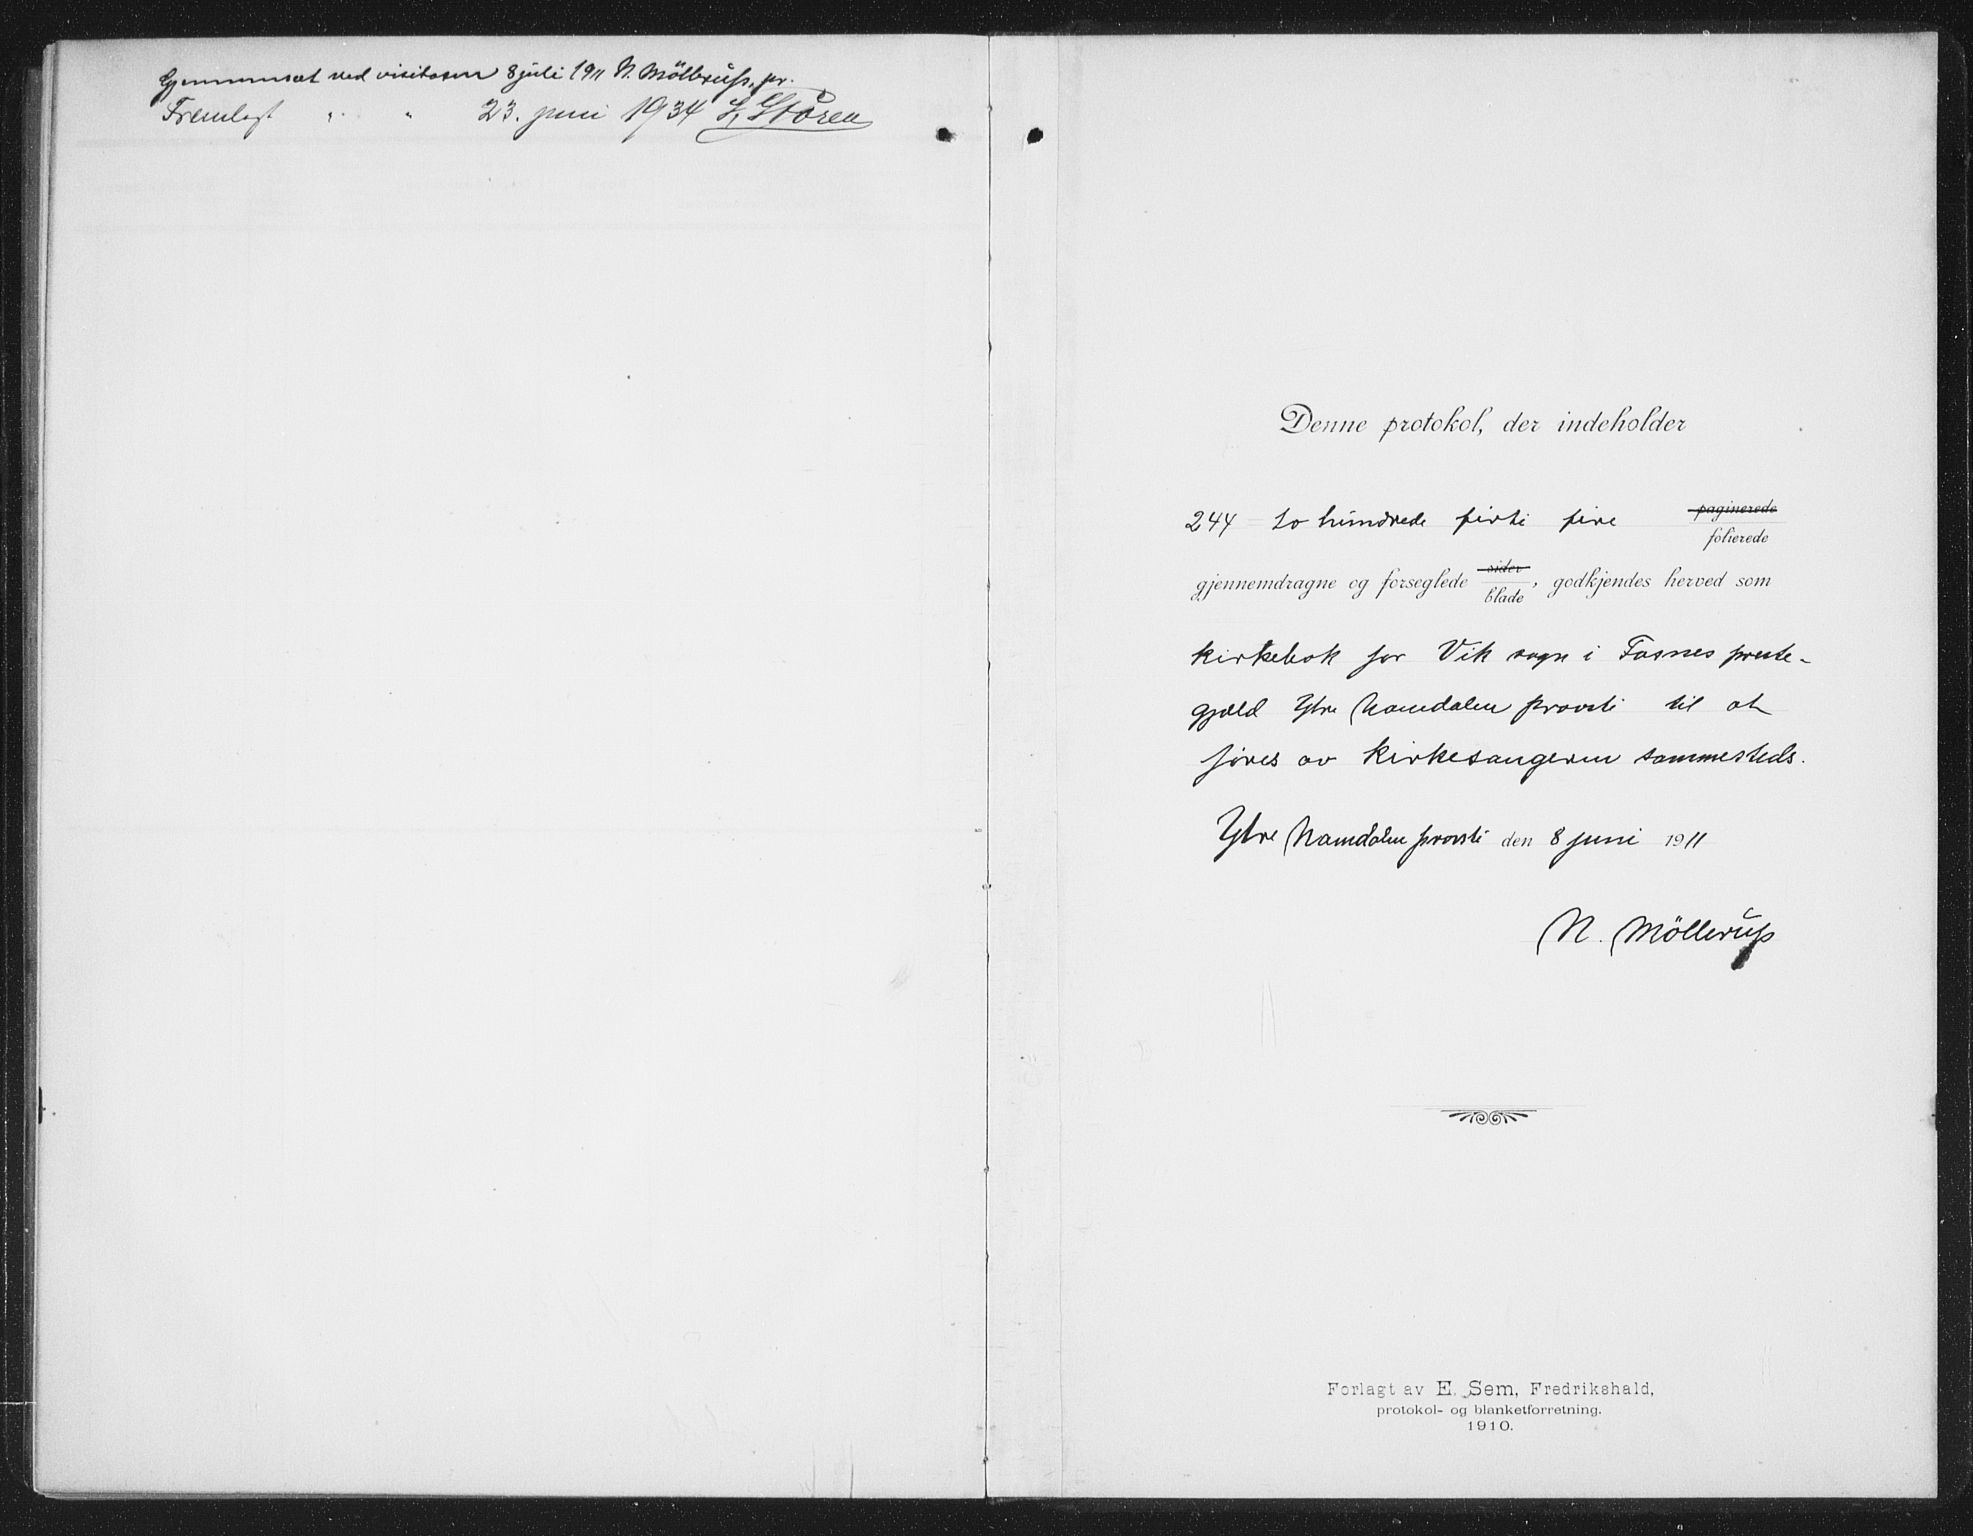 Gjennemset ved visitasen 8 juli 1911 N. Möllerup, pr.
Fremlagt " " 23. juni 1934 L. Støren
Denne protokol, der indeholder
244 to hundrede firti fire paginerede
folierede
gjennemdragne og forseglede sider
blade, godkjendes herved som
kirkebok for Vik sogn i Fosnes preste-
gjeld Ytre Namdalen provsti til at
føres av kirkesangeren sammesteds.
Ytre Namdalen provsti den 8 juni 1911
N. Möllerup
Forlagt av E. Sem, Fredrikshald,
protokol- og blanketforretning.
1910.